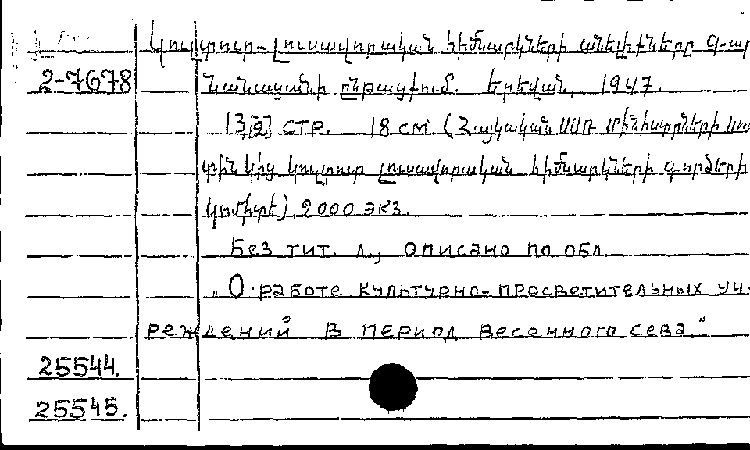 Կուլտուր-լուսավորական հիմնարկների անելիքները գ-ար
2-7678 նանացանի ընթացքում. Երեվան, 1947.
13,[2] стр. 18 см (Հայկական ՍՍՌ Մինիստրների Սով
տին կից կուլտուր լուսավորական հիմնարկների գործերի
կոմիտե) 2000 экз.
Без тит. л., описано по обл.
„О работе культурно-просветительных уч-
реждений в период весеннего сева."
25544.
25545.